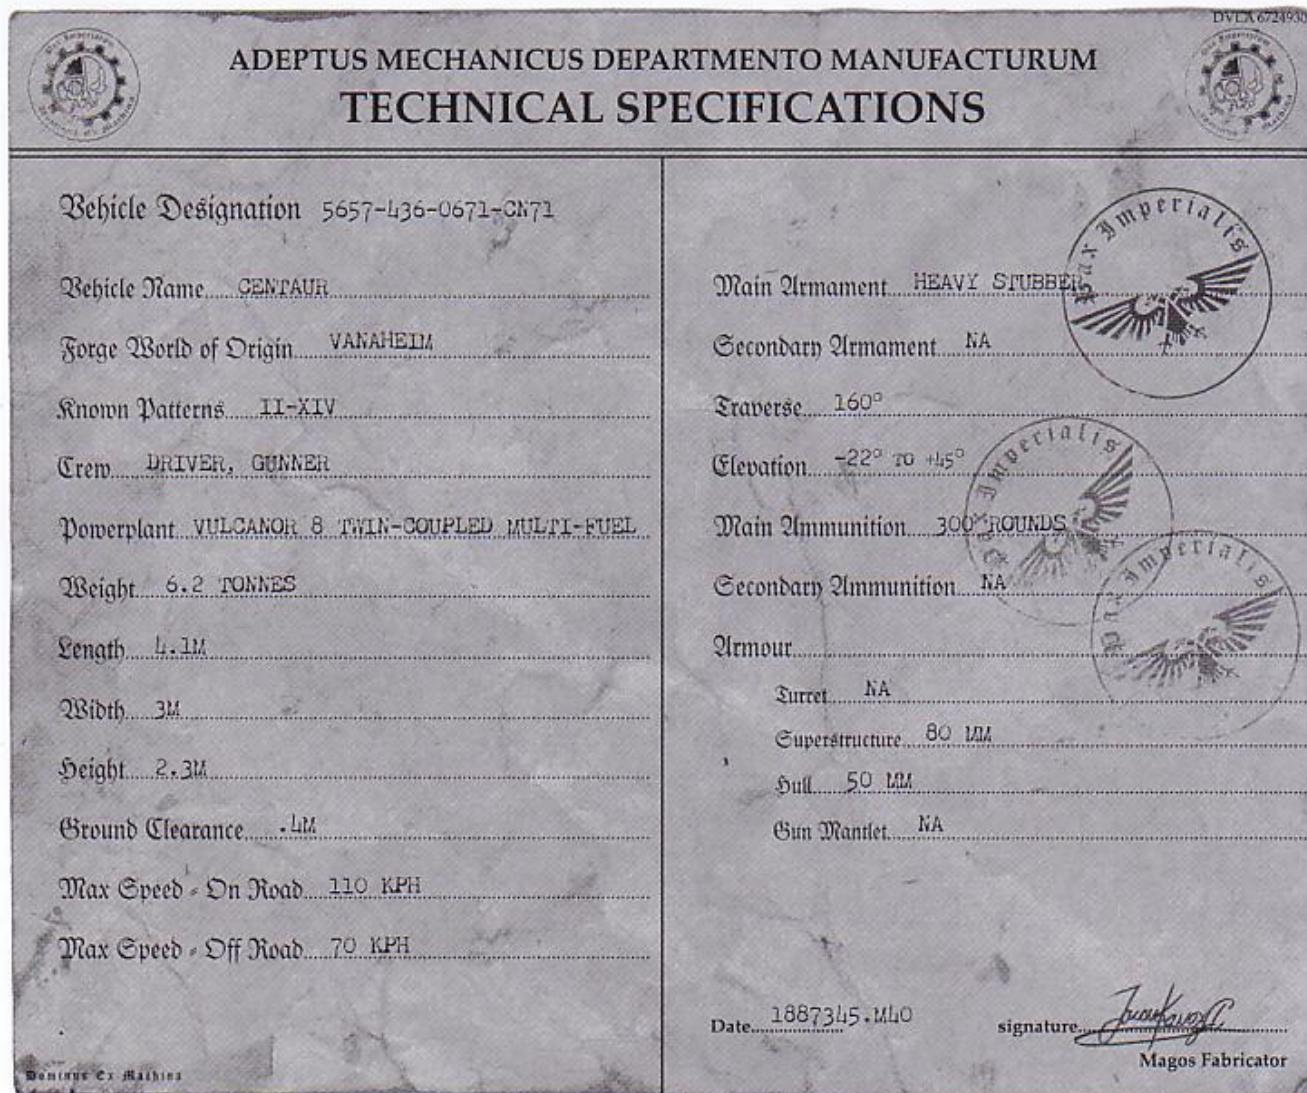 DVLA 6724930
ADEPTUS MECHANICUS DEPARTMENTO MANUFACTURUM
TECHNICAL SPECIFICATIONS
Vehicle Designation 5657-436-0671-CN71
Vehicle Name CENTAUR
Forge World of Origin VANAHEIM
Known Patterns II-XIV
Crew DRIVER, GUNNER
Powerplant VULCANOR 8 TWIN-COUPLED MULTI-FUEL
Weight 6.2 TONNES
Length 4.1M
Width 3M
Height 2.3M
Ground Clearance .4M
Max Speed - On Road 110 KPH
Max Speed - Off Road 70 KPH
Dominus Ex Machina
Pax Imperialis
Main Armament HEAVY STUBBER
Secondary Armament NA
Traverse 160°
Elevation -22° TO +45°
Pax Imperialis
Main Ammunition 300 ROUNDS
Pax Imperialis
Secondary Ammunition NA
Armour
Turret NA
Superstructure 80 MM
Hull 50 MM
Gun Mantlet NA
Date 1887345.M40
signature
Magos Fabricator